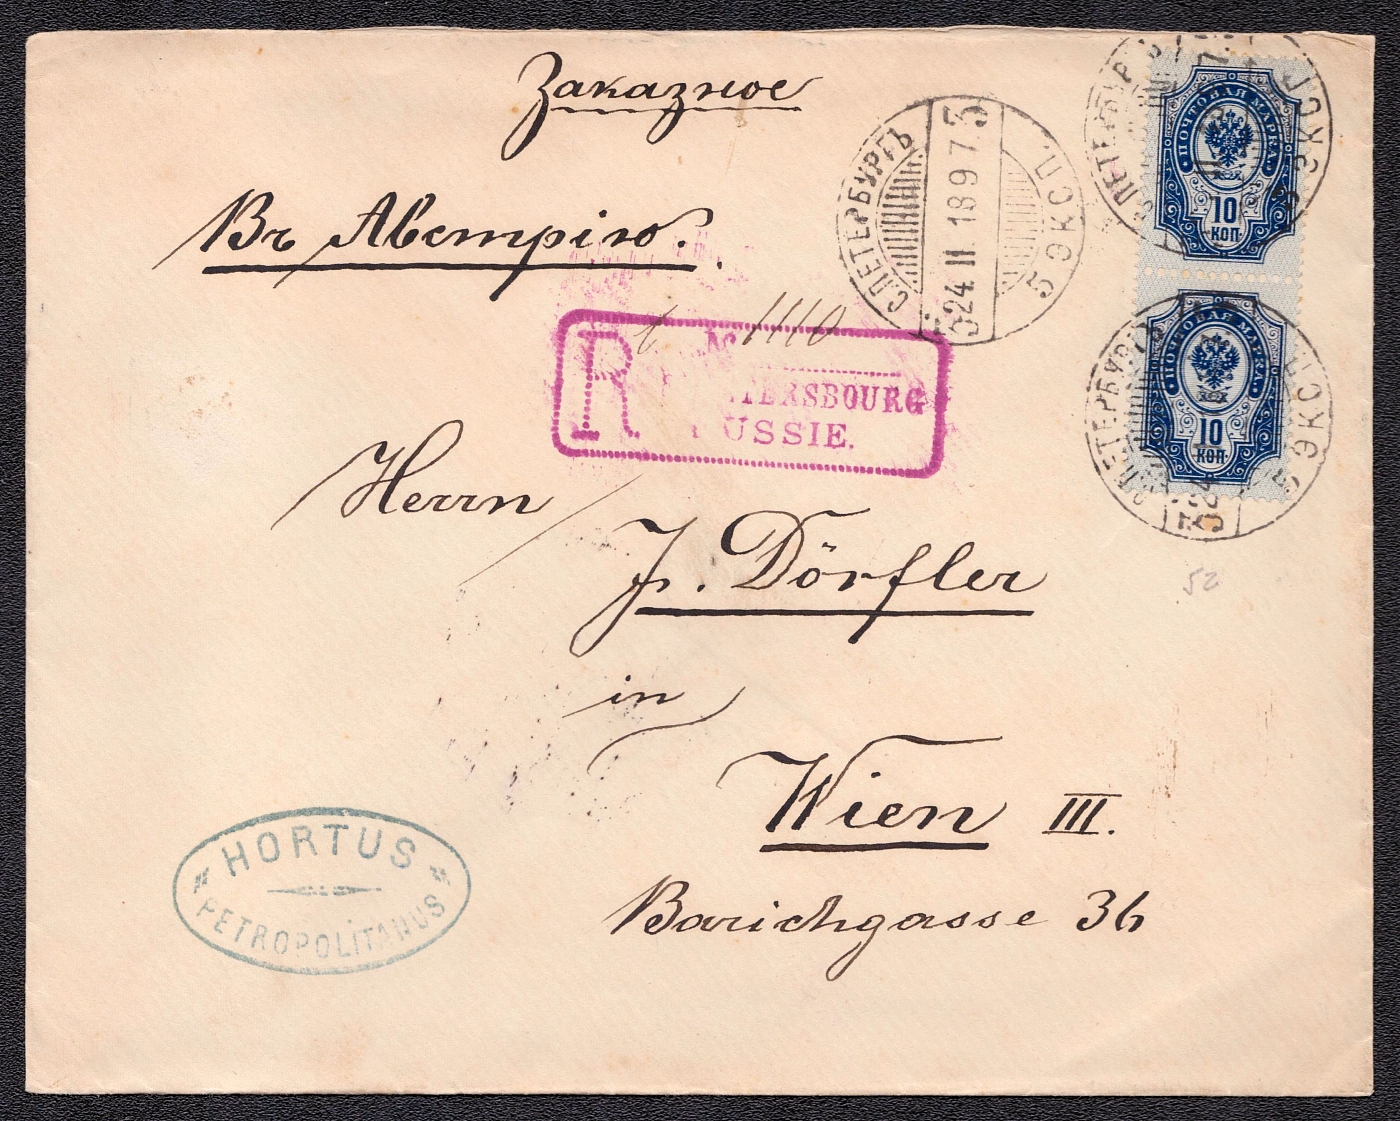 Заказное
Въ Австрію.
С.ПЕТЕРБУРГЪ
24.II 1897.
5 ЭКСП.
ПОЧТОВАЯ МАРКА
10
КОП
ПОЧТОВАЯ МАРКА
10
КОП
С.ПЕТЕРБУРГЪ
5 ЭКСП.
1110
R
TERSBOURG
USSIE.
Herrn
J. Dörfler
in
Wien III.
Barichgasse 36
52
HORTUS
PETROPOLITANUS